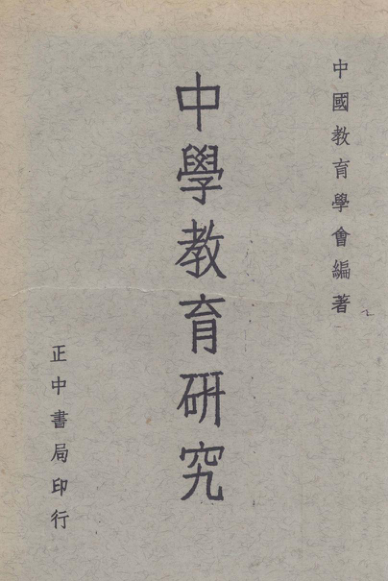 中國教育學會編著
中學教育研究
正中書局印行